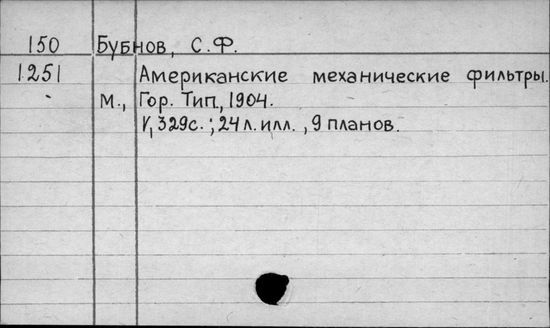 150 Бубнов, С.Ф.
1251 Американские механические фильтры.
М., Гор. Тип., 1904.
V, 329с.; 24 л. илл., 9 планов.